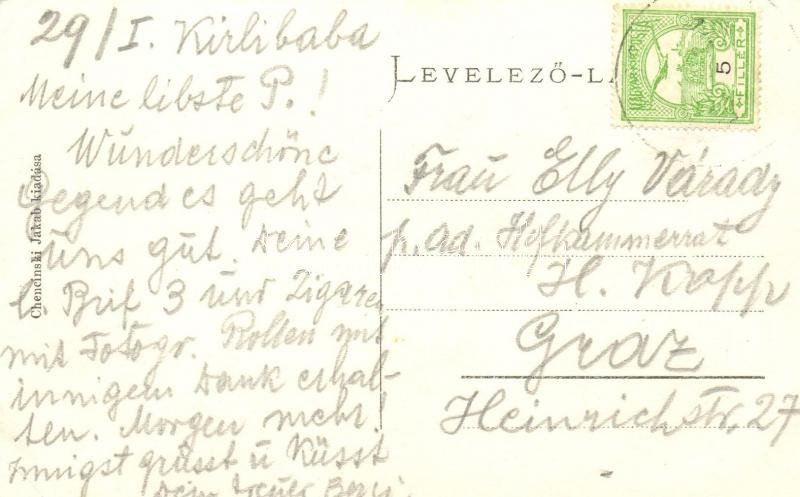 29/I. Kirlibaba
Meine libste P.!
Wunderschöne
Gegend es geht
uns gut. Deine
l. Brif 3 und Zigaren
mit Fotogr. Rollen mit
innigem Dank erhal-
ten. Morgen mehr!
Innigst grüsst u küsst
Dein treuer
Chencinski Jakab kiadása
LEVELEZŐ-LA
5
FILLÉR
Frau Elly Várady
p. Ad. Hofkammerrat
H. Kopp
Graz
Heinrichstr. 27